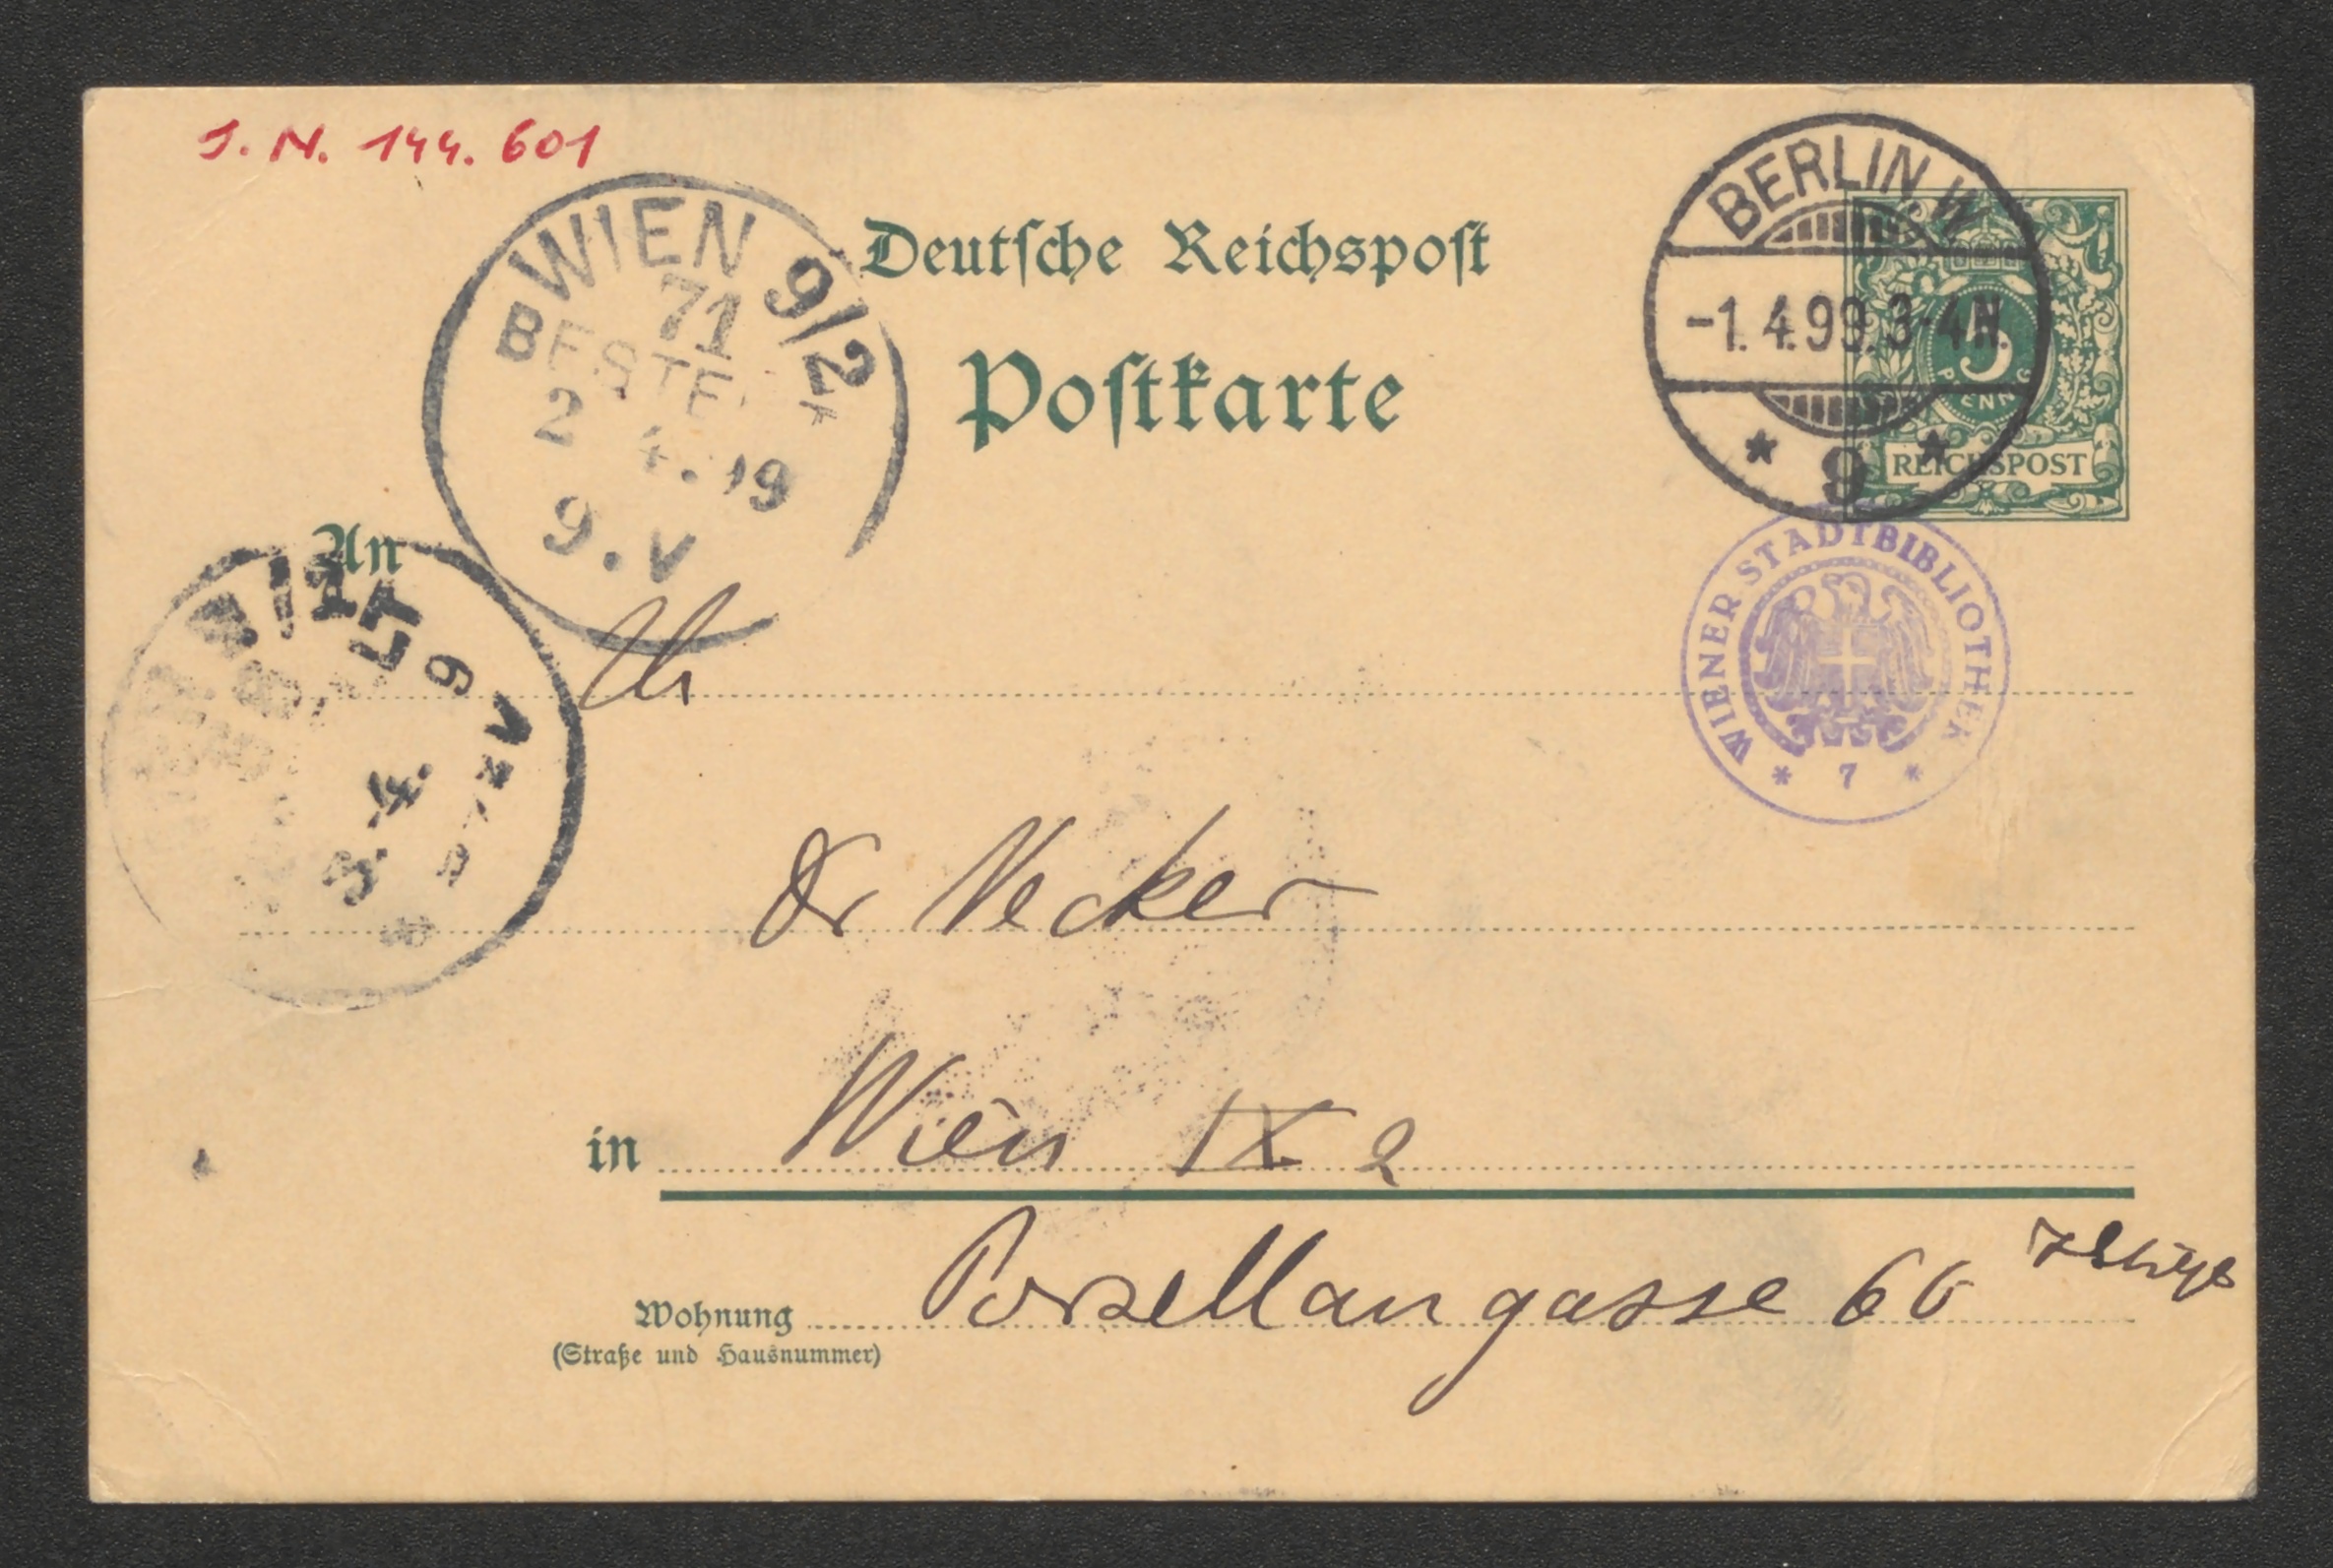 J. N. 144. 601
WIEN 9/2
71
BESTE
2 4. 99
9. V
Deutsche Reichspost
Postkarte
BERLIN W
-1. 4. 99. 3-4 N.
* 9 *
5
PFENNIG
REICHSPOST
WIENER STADTBIBLIOTHEK
* 7 *
An
3. 4.
Dr Necker
in Wien IX 2
Wohnung Porzellangasse 66
(Straße und Hausnummer)